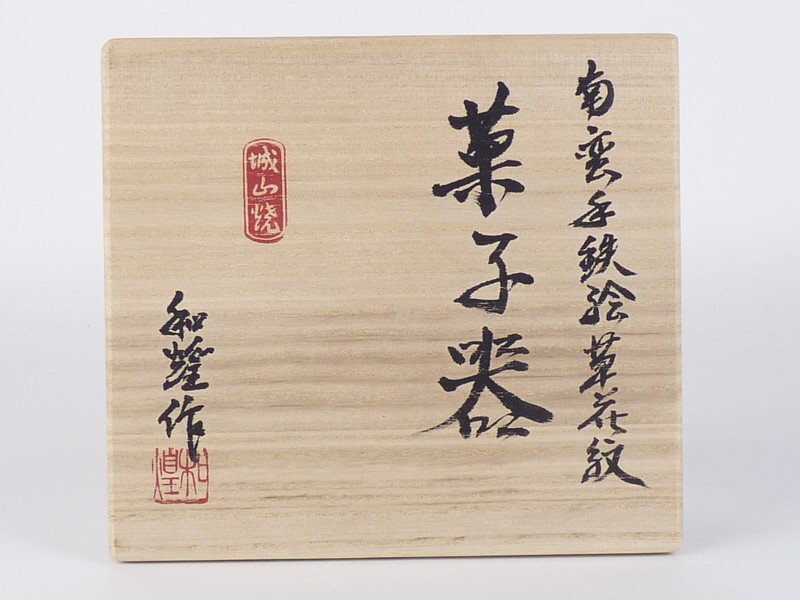 南蛮手鉄絵草花紋
菓子器
城山焼
和煌作
和煌